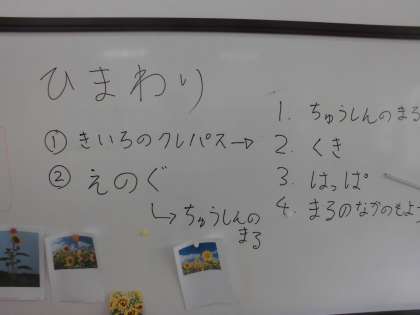 ひまわり
① きいろのクレパス→
② えのぐ
↳ ちゅうしんの
まる
1. ちゅうしんのまる
2. くき
3. はっぱ
4. まるのなかのもよう